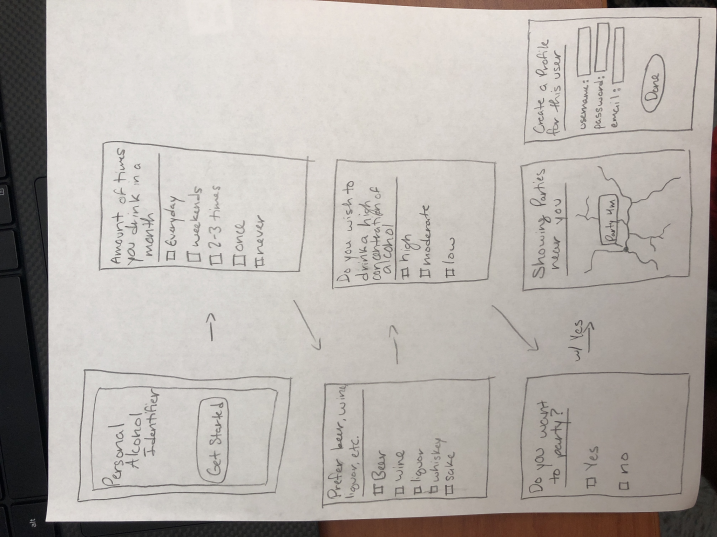 Personal
Alcohol
Identifier
Get Started
Amount of times
you drink in a
month
Everyday
weekends
2-3 times
once
never
Prefer beer, wine
liquor, etc.
Beer
wine
liquor
whiskey
sake
Do you wish to
drink a high
concentration of
alcohol
high
moderate
low
Do you want
to party?
Yes
no
w/ Yes
Showing Parties
near you
Party 4m
Create a Profile
for this user
username:
password:
email:
Done
alt